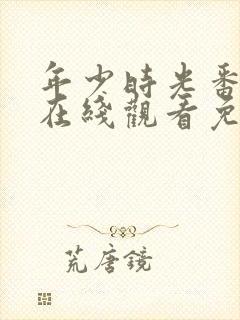 年少時光番
在綫觀看免
荒唐鏡